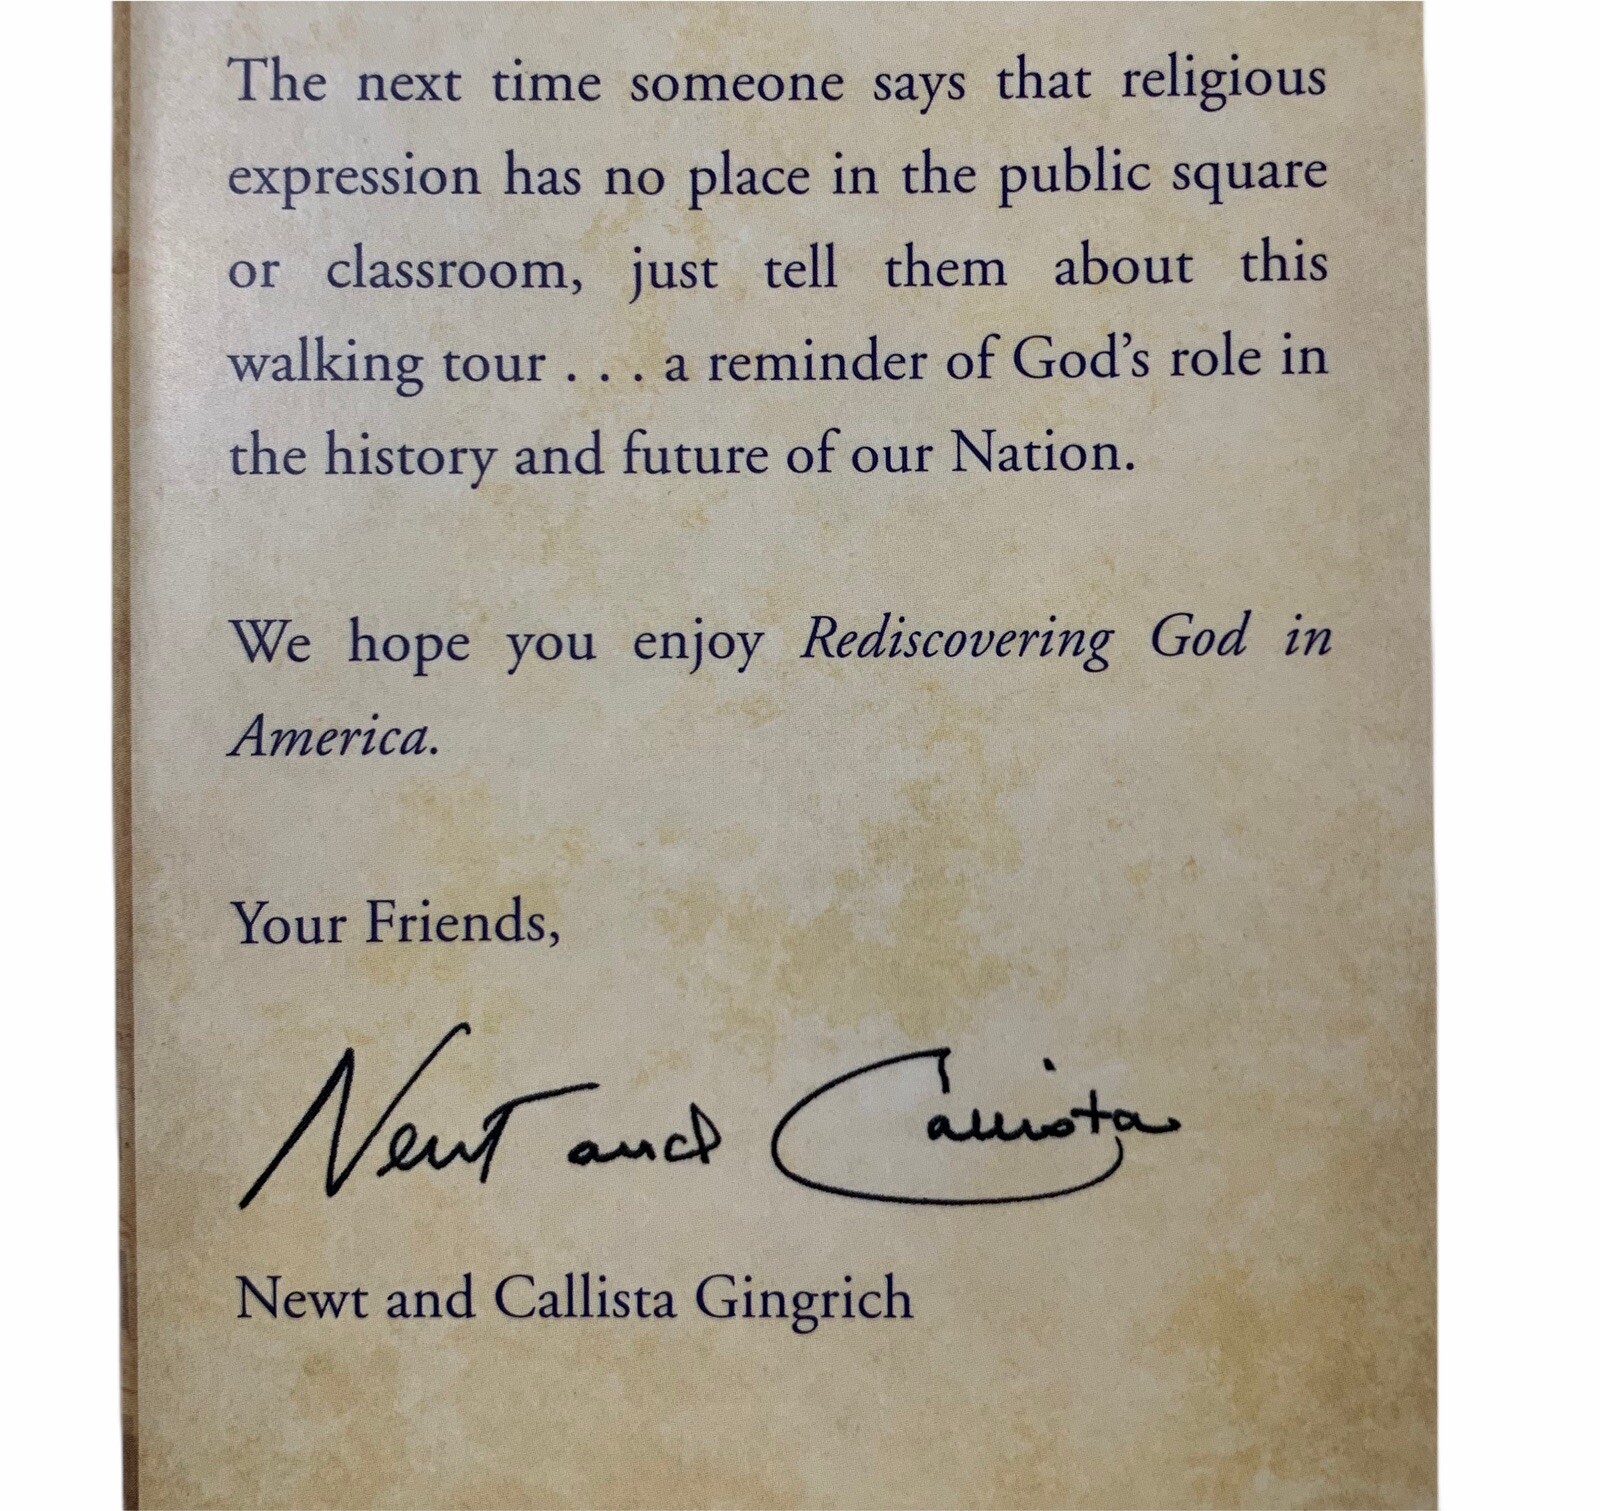 The next time someone says that religious
expression has no place in the public square
or classroom, just tell them about this
walking tour . . . a reminder of God’s role in
the history and future of our Nation.
We hope you enjoy Rediscovering God in
America.
Your Friends,
Newt and Callista
Newt and Callista Gingrich